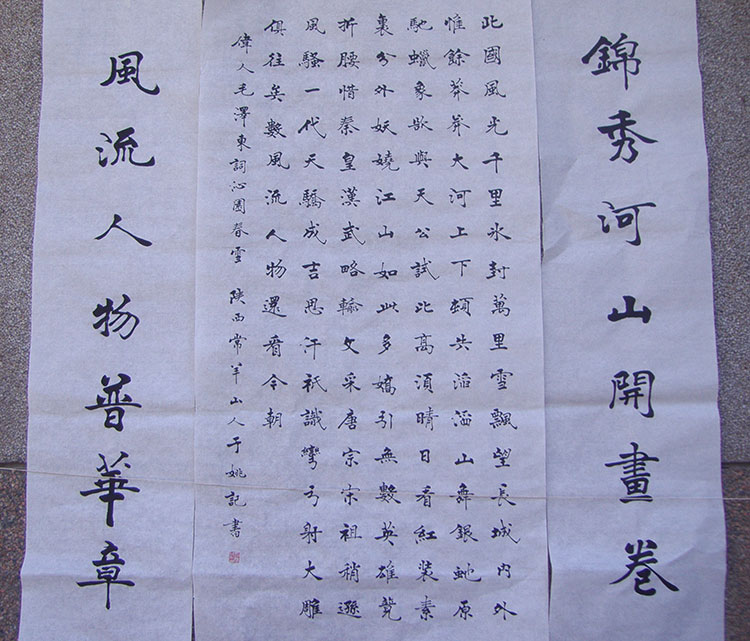 錦秀河山開畫卷
此國風光千里氷封萬里雪飄望長城內外
惟餘莽莽大河上下頓失滔滔山舞銀虵原
馳蠟象欲與天公試比高須晴日看紅裝素
裹分外妖嬈江山如此多嬌引無數英雄競
折腰惜秦皇漢武略輸文采唐宗宋祖稍遜
風騷一代天驕成吉思汗祇識彎弓射大雕
俱往矣數風流人物還看今朝
偉人毛澤東詞沁園春雪 陝西常羊山人于姚記書
風流人物普華章